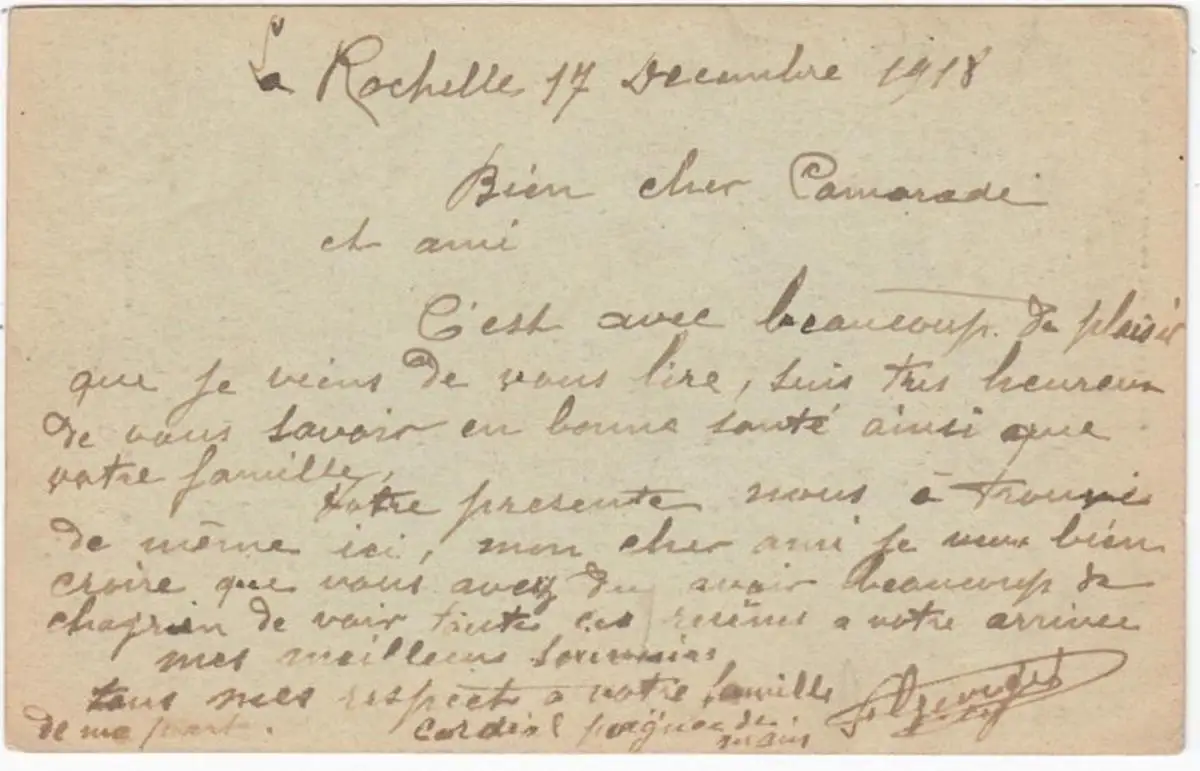 La Rochelle 17 Decembre 1918
Bien cher Camarade
et ami
C'est avec beaucoup de plaisir
que je viens de vous lire, suis tres heureux
de vous savoir en bonne santé ainsi que
votre famille,
Votre presente nous à trouvé
de même ici, mon cher ami je veux bien
croire que vous avez du avoir beaucoup de
chagrin de voir toute ces ruines a votre arrivee
mes meilleurs souvenirs
tous mes respects a votre famille
de ma part.
Cordial poignee de
main